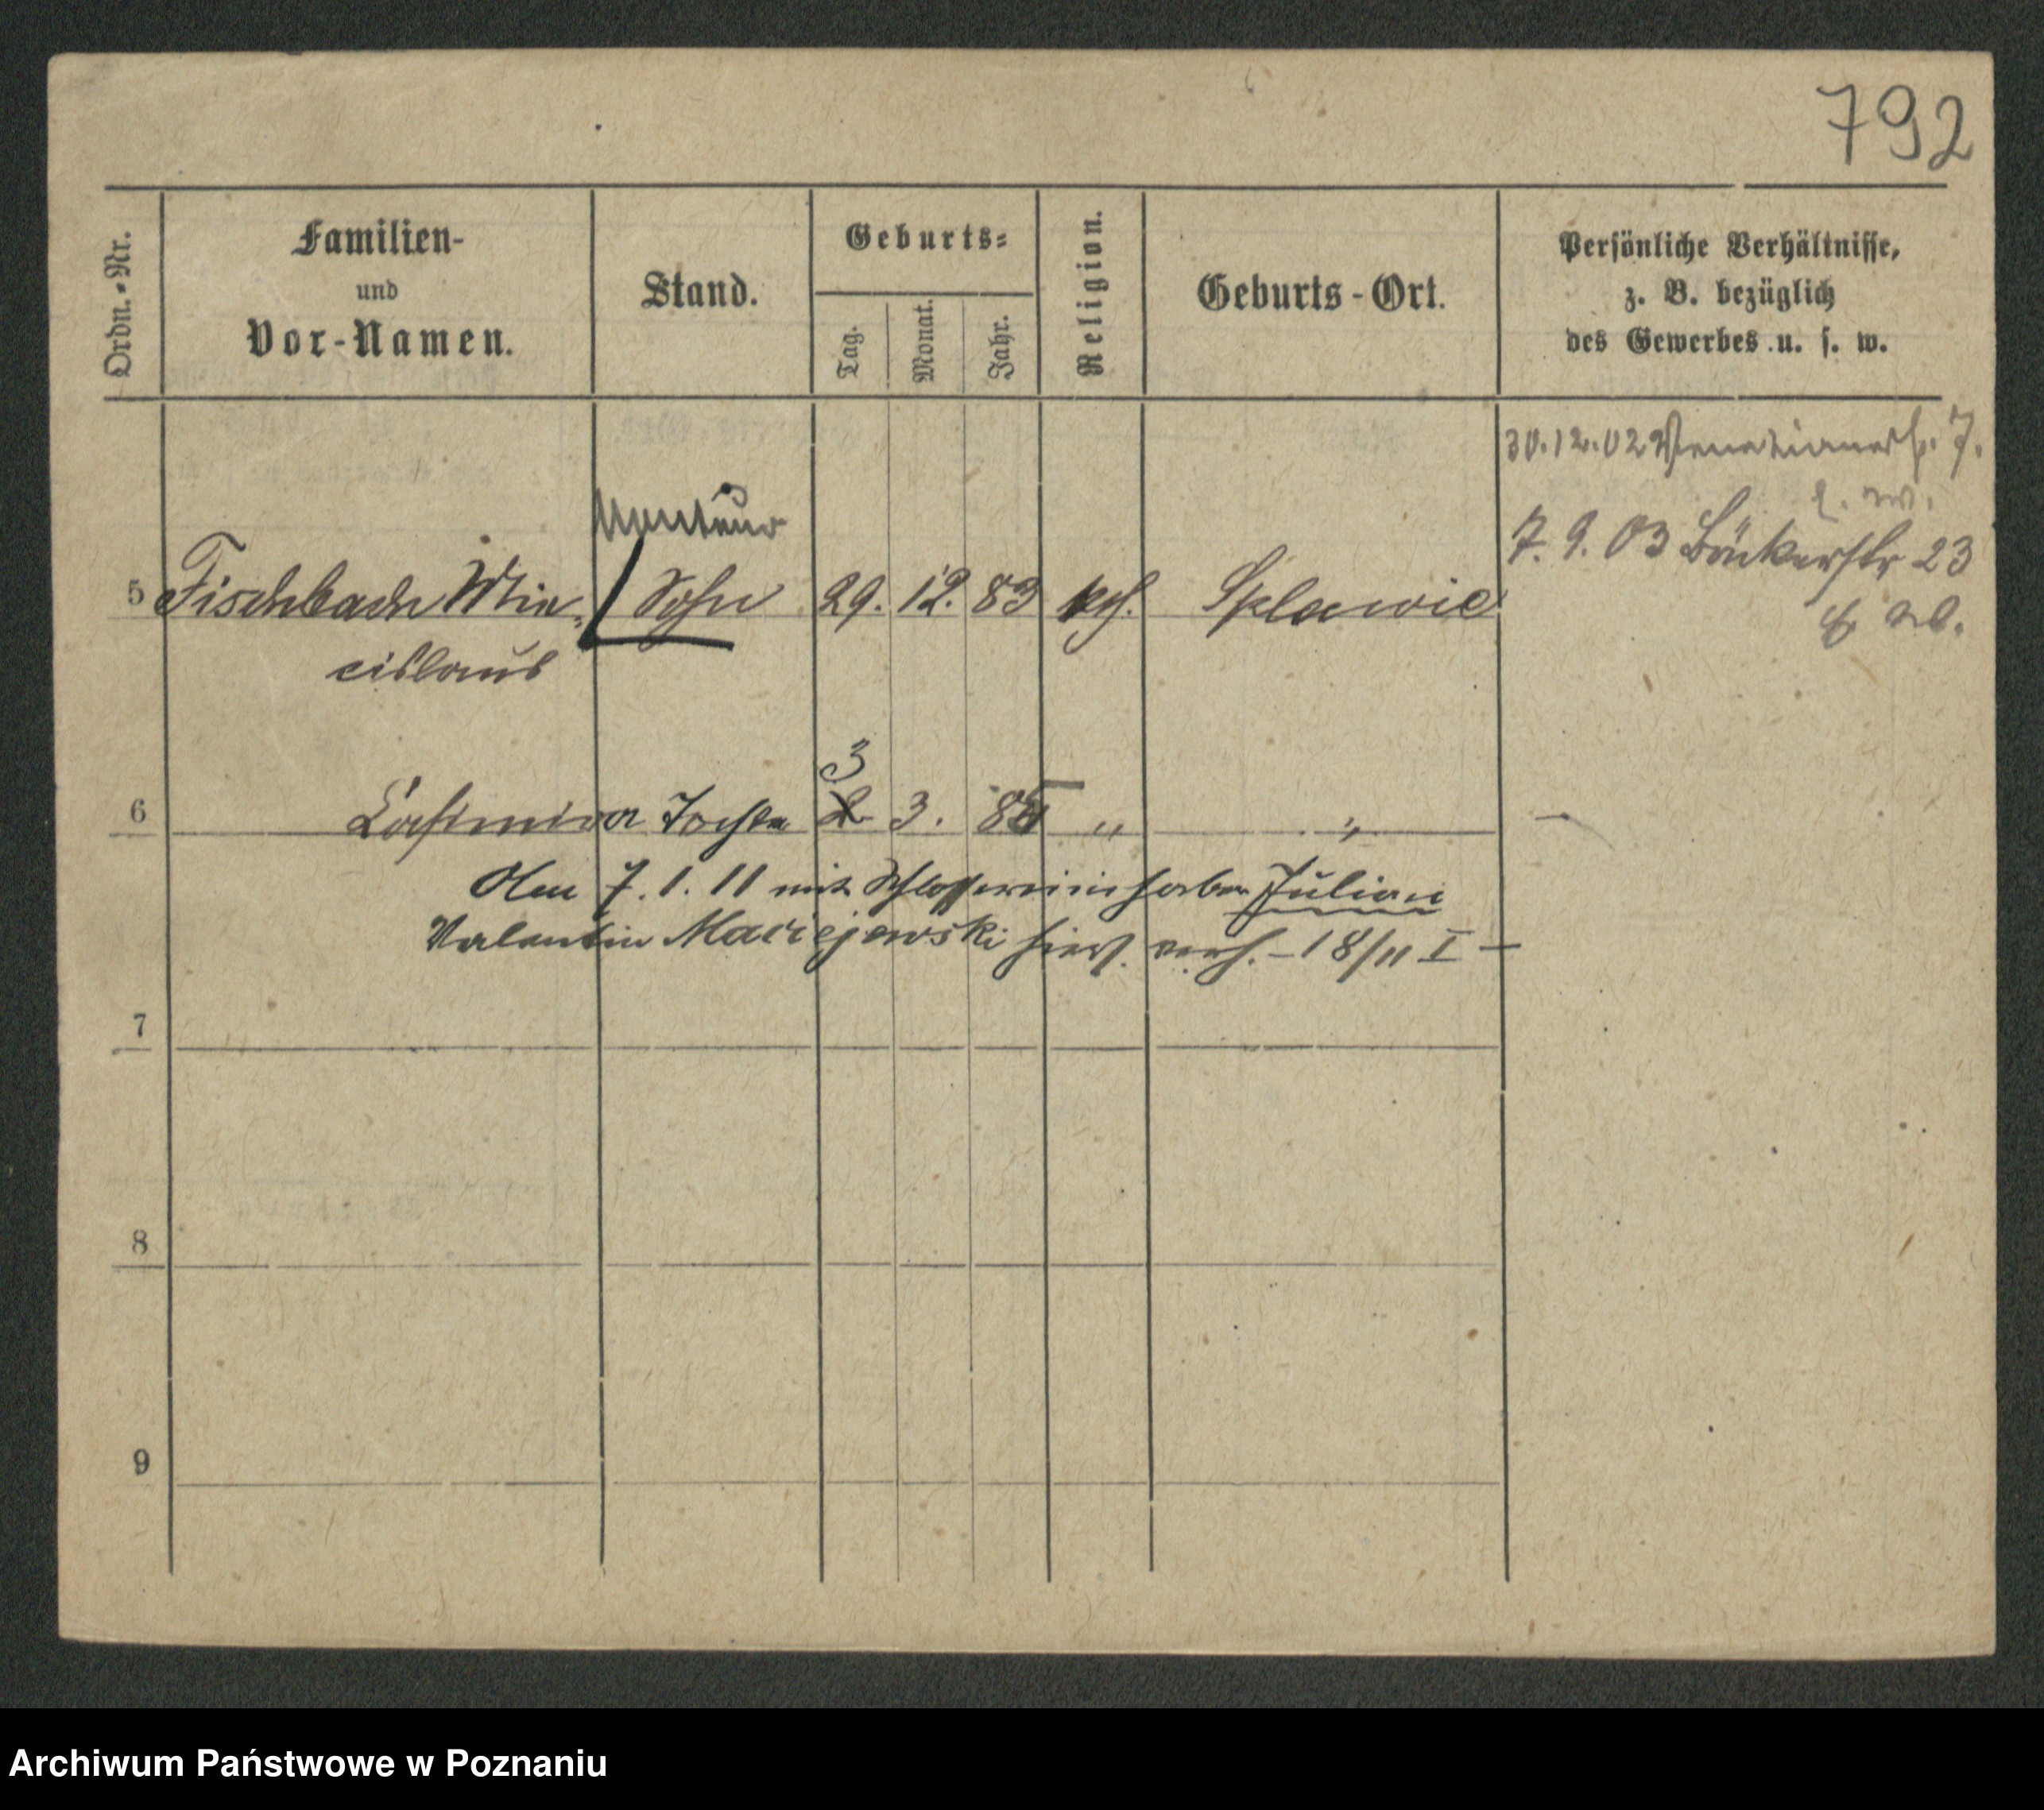 792
Ordn.-Nr.
Familien-
und
Vor-Namen.
Stand.
Geburts-
Tag.
Monat.
Jahr.
Religion.
Geburts-Ort.
Persönliche Verhältnisse,
z. B. bezüglich
des Gewerbes u. s. w.
30.12.02 Venetianerstr. 7.
7.9.03 Bäckerstr 23
Monteur
5 Fischbach Mie- Sohn 29. 12. 83 kth. Splawie
cislaus
3
6 Casimira Tochter 2. 3. 85 " "
Am 7.1.11 mit Schlossereiinhaber Julian
Valentin Maciejewski hier verh. – 18/11 I –
7
8
9
Archiwum Państwowe w Poznaniu